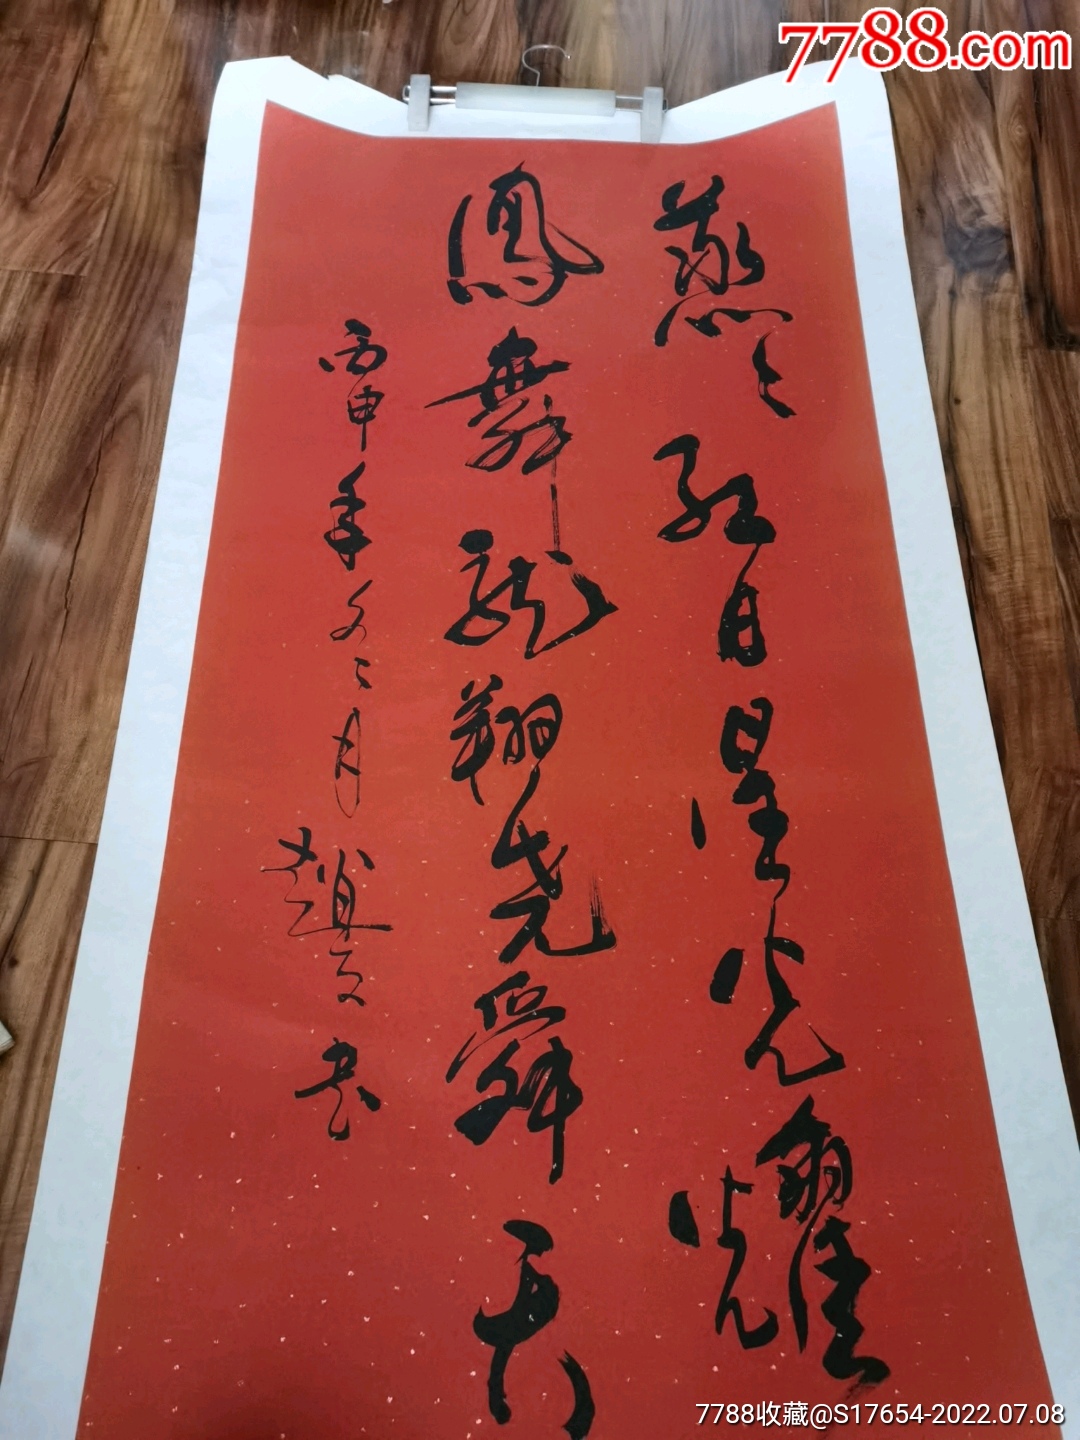 7788.com
蒸々红日星光耀
鳳舞龍翔堯舜天
丙申年冬月趙書
7788收藏@S17654-2022.07.08